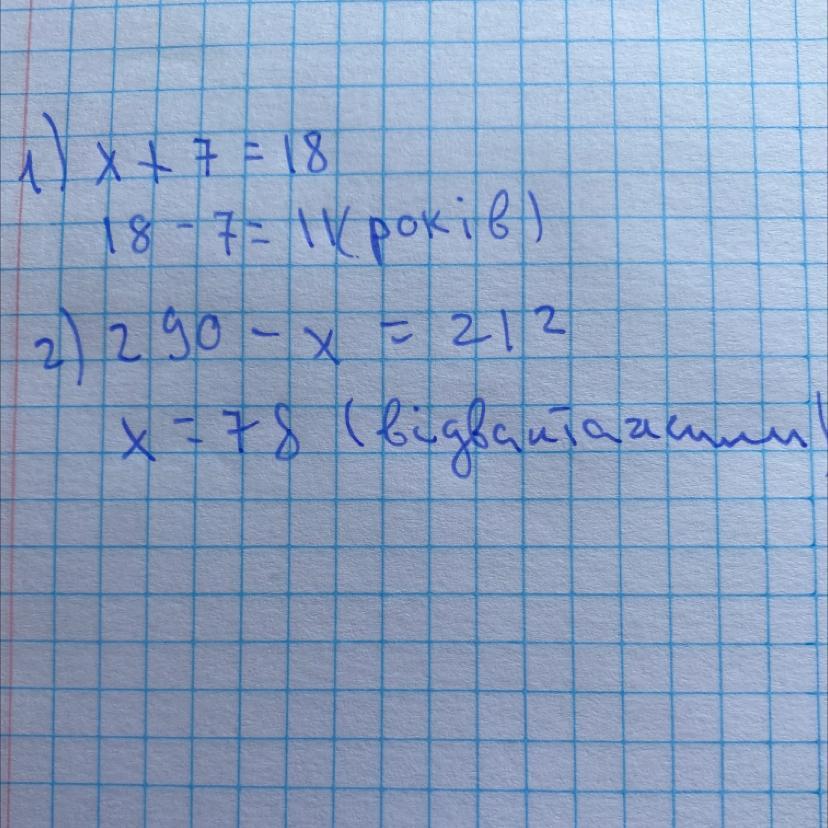 1) x + 7 = 18
18 - 7 = 11 (років)
2) 290 - x = 212
x = 78 (відвантажили)